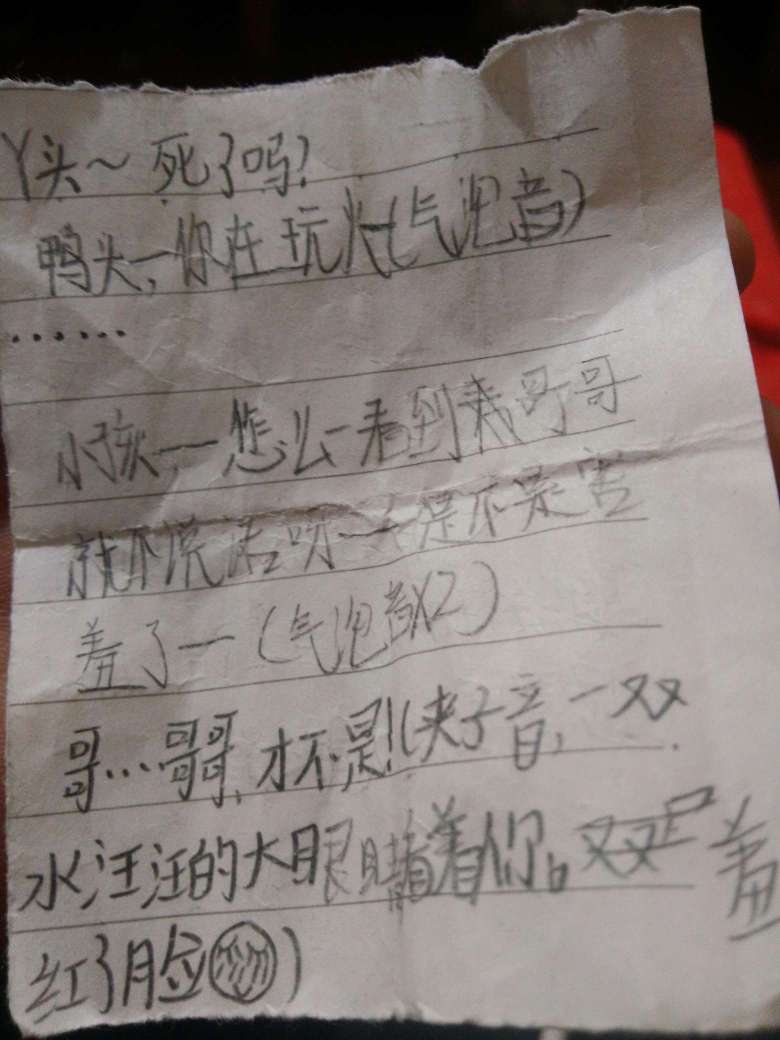 丫头~死了吗?
鸭头,你在玩火(气泡音)
......
小孩一怎么一看到我哥哥
就不说话呀一是不是害
羞了一(气泡音X2)
哥...哥哥,才不是!(夹子音,一双
水汪汪的大眼睛看着你。羞
红了脸)